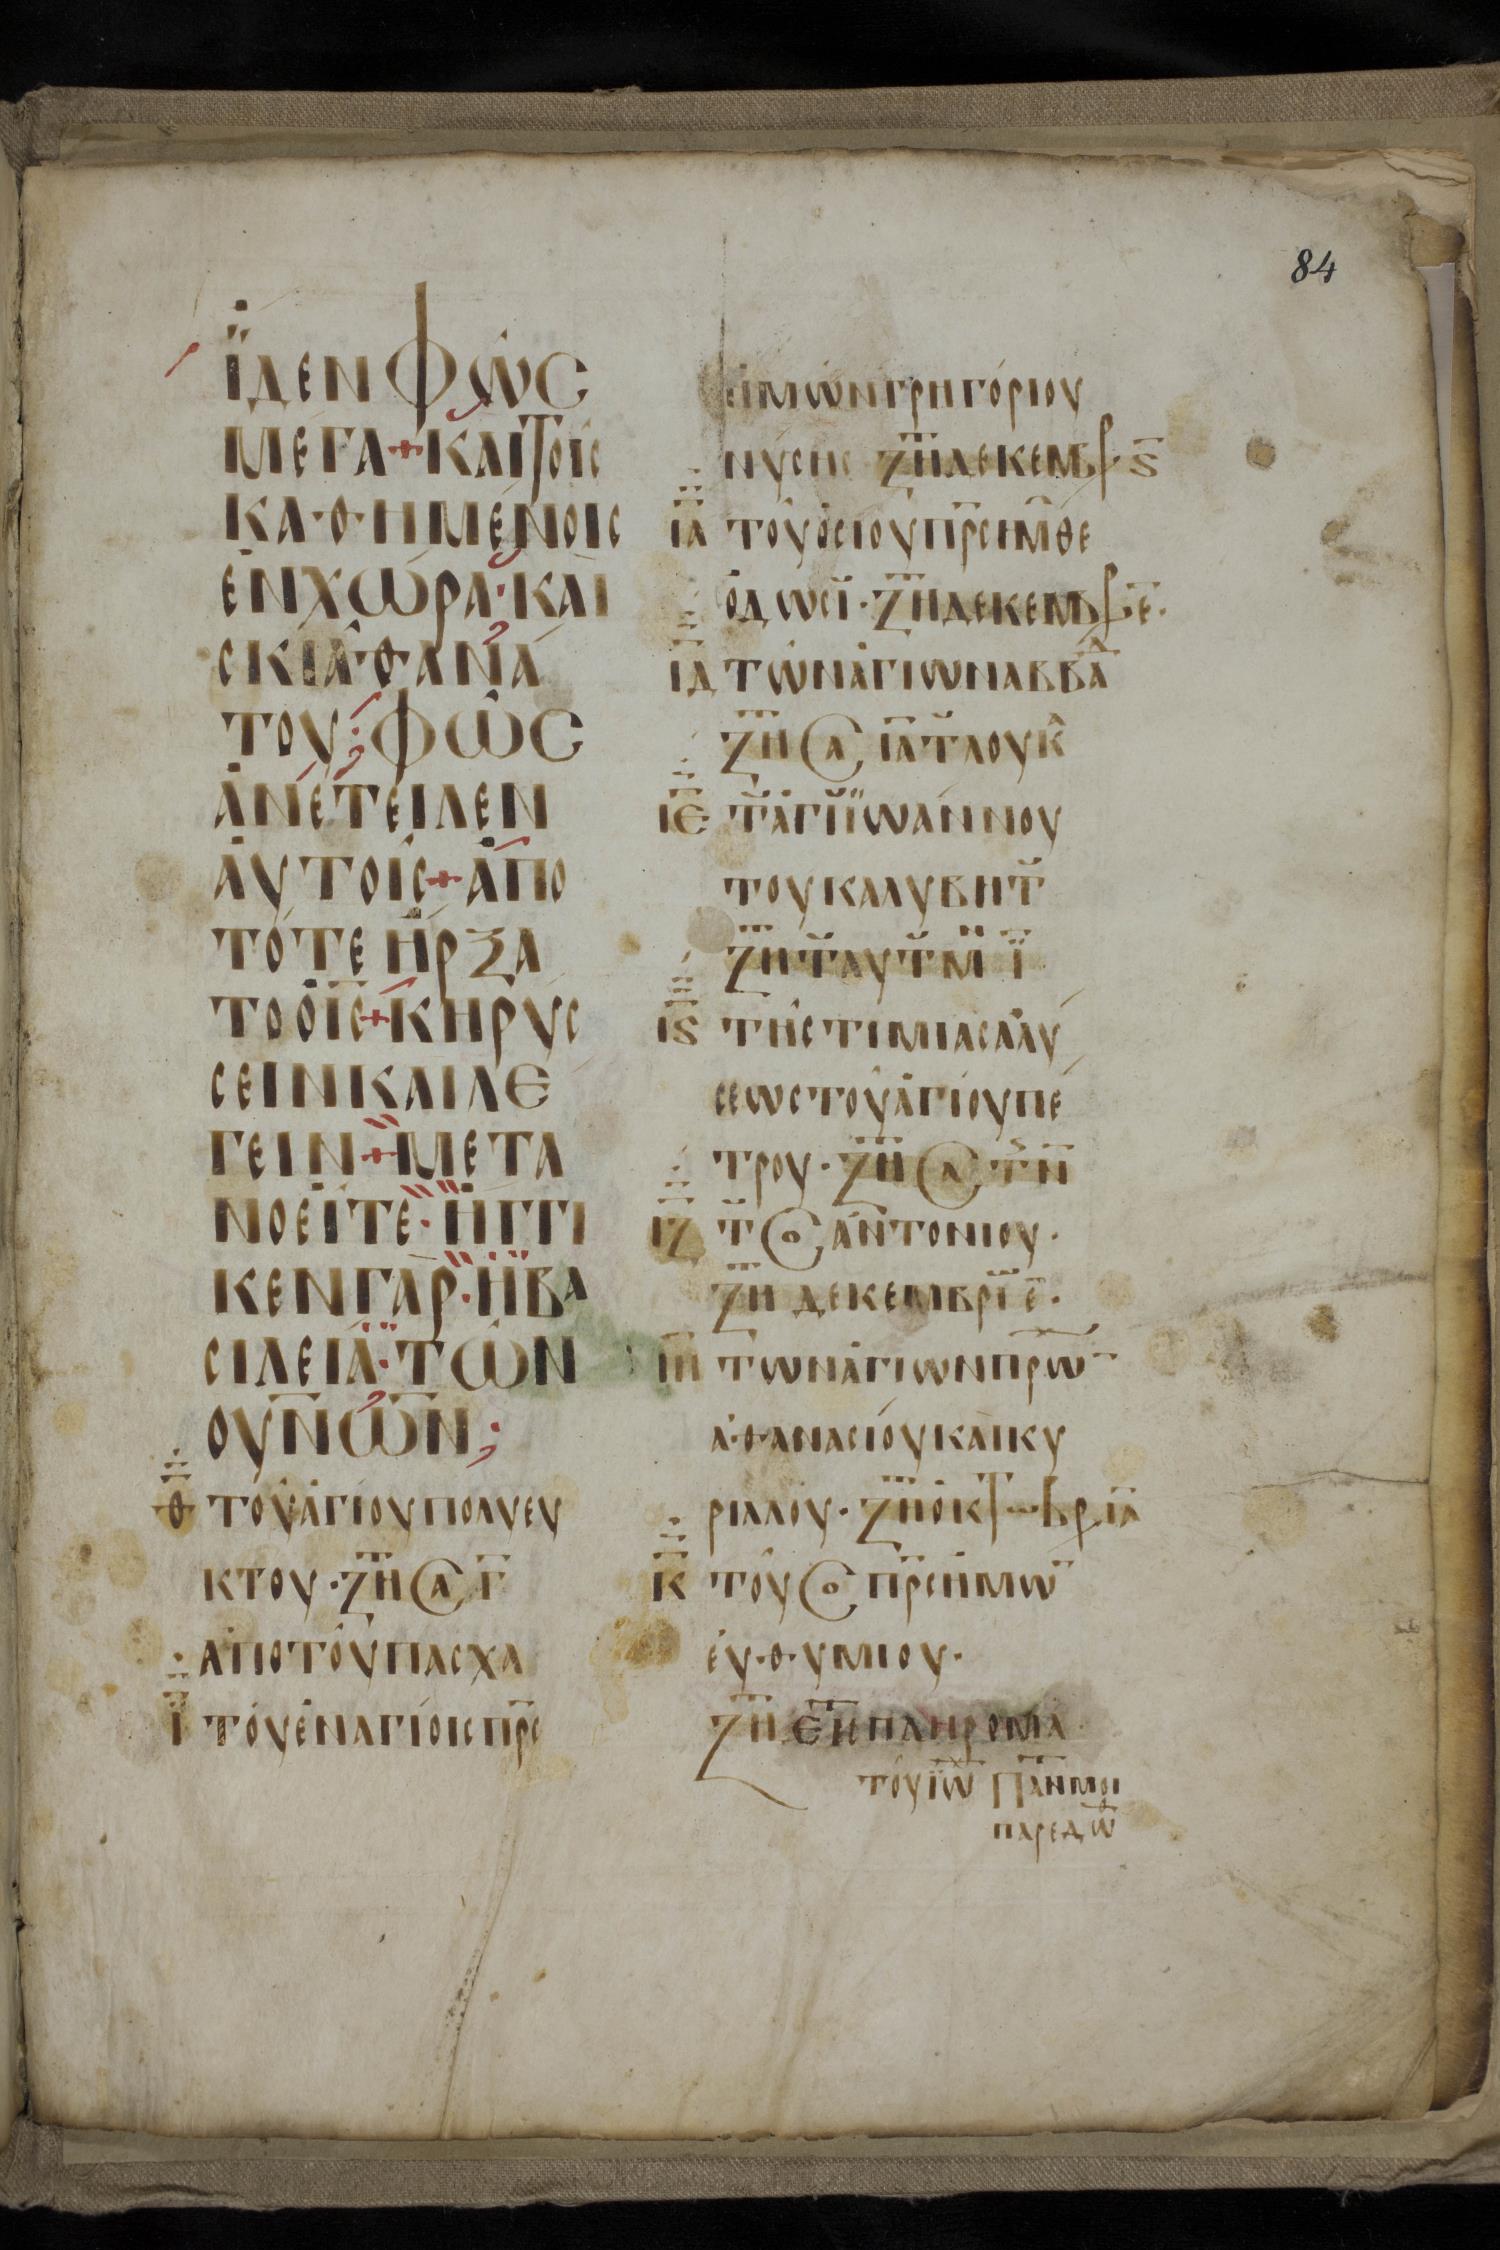 84
ΪΔΕΝ ΦῶC
ΜΕΓΑ + ΚΑΙ ΤΟῖC
ΚΑΘΗΜΕΝΟΙC
ἐΝ ΧώΡΑ · ΚΑὶ
CΚΙᾶ ΘΑΝΆ
ΤΟΥ ; ΦῶC
ἀΝΈΤΕΙΛΕΝ
ἀΥΤΟῖC + ἀΠΟ
ΤΌΤΕ ἨΡΞΑ
ΤΟ ὁ ΙC̅ + ΚΗΡΥC
CΕΙΝ ΚΑΙ ΛΕ
ΓΕΙΝ + ΜΕΤΑ
ΝΟΕῖΤΕ · ἨΓΓΙ
ΚΕΝ ΓὰΡ · Ἡ ΒΑ
CΙΛΕΊΑ · ΤῶΝ
ΟΥΝ̅ῶΝ̅ ;
Θ ΤΟῦ ἁΓΊΟΥ ΠΟΛΥΕΥ
ΚΤΟΥ · ΖΗ̅ CΑ Γ̅
ἀΠΟ ΤΟῦ ΠΑCΧΑ
Ι̅ ΤΟῦ ἐΝ ἁΓΊΟΙC ΠΡ̅C
ἡΜῶΝ ΓΡΗΓΌΡΙΟΥ
ΝΎCΗC ΖΗ̅ ΔΕΚΕΜΒΡ Ϛ̅
ΙΑ ΤΟῦ ὁCΙΟΥ ΠΡ̅C ἡΜ̅ ΘΕ
ΟΔΩCΙ · ΖΗ̅ ΔΕΚΕΜΒΡ Ε̅ ·
ΙΔ ΤῶΝ ἁΓΙΩΝ ΑΒΒᾶ
ΖΗ̅ CΑ ΙΑ̅ Τ ΛΟΥΚ
ΙΕ Τ ἁΓΙ ΪΩΆΝΝΟΥ
ΤΟΥ ΚΑΛΥΒΗΤ
ΖΗ̅ Τ ΑΥΤ Μ Ϊ
ΙϚ ΤῆC ΤΙΜΙΑC ἁΛΎ
CΕΩC ΤΟῦ ἁΓΊΟΥ ΠΈ
ΤΡΟΥ · ΖΗ̅ CΑ ΤΗ̅
ΙΖ Τ CΟ ἀΝΤΟΝΙΟΥ ·
ΖΗ̅ ΔΕΚΕΜΒΡΙ Ε̅ ·
ΙΗ ΤΩΝ ἁΓΙΩΝ ΠΡΩ̅
ἀΘΑΝΑCΊΟΥ ΚΑὶ ΚΥ
ΡΙΛΛΟΥ · ΖΗ̅ ὀΚΤΩΒΡ ΙΑ̅
Κ ΤΟῦ CΟ ΠΡ̅C ἡΜΩ̅
ἐΥΘΥΜΙΟΥ ·
ΖΗ̅ ΕΙC ΠΛΗΡΟΜΑ
ΤΟῦ ΙΩ̅ ΠΑΝ ΜΟΙ
ΠΑΡΕΔΩ